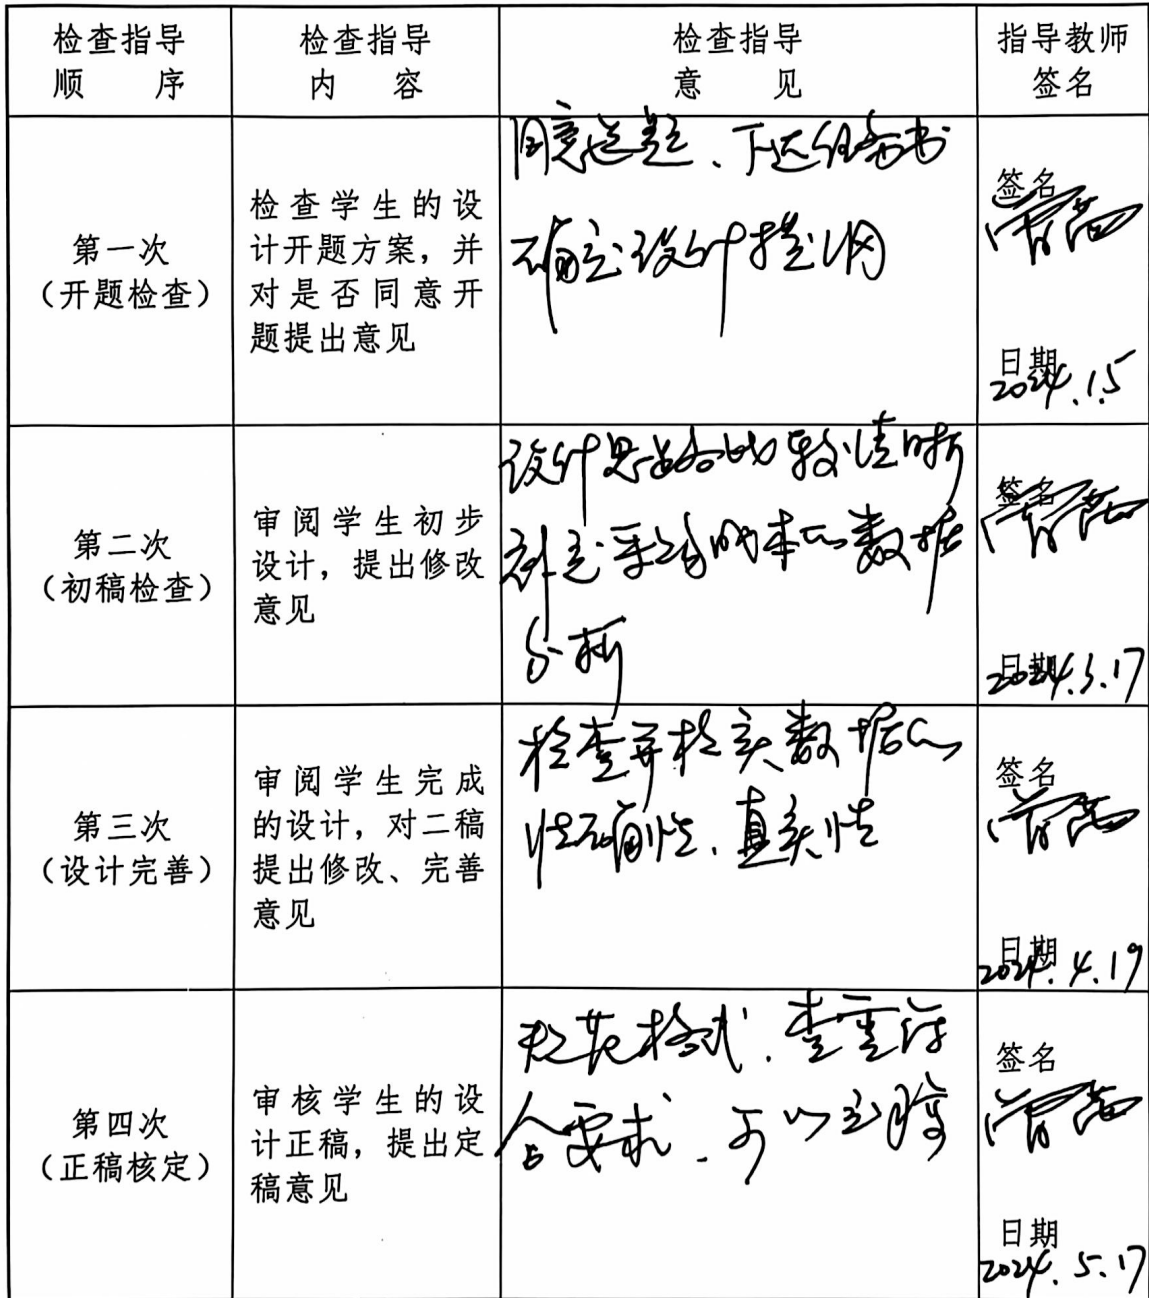 检查指导 顺 序
检查指导 内 容
检查指导 意 见
指导教师 签名
第一次
（开题检查）
检查学生的设
计开题方案，并
对是否同意开
题提出意见
同意选题、下达任务书
确定设计提纲
签名
日期
2024.1.5
第二次
（初稿检查）
审阅学生初步
设计，提出修改
意见
设计思路结构较清晰
补充采编成本的数据
分析
签名
日期
2024.3.17
第三次
（设计完善）
审阅学生完成
的设计，对二稿
提出修改、完善
意见
检查并核实数据的
准确性、真实性
签名
日期
2024.4.19
第四次
（正稿核定）
审核学生的设
计正稿，提出定
稿意见
规范格式、查重符
合要求、可以定稿
签名
日期
2024.5.17